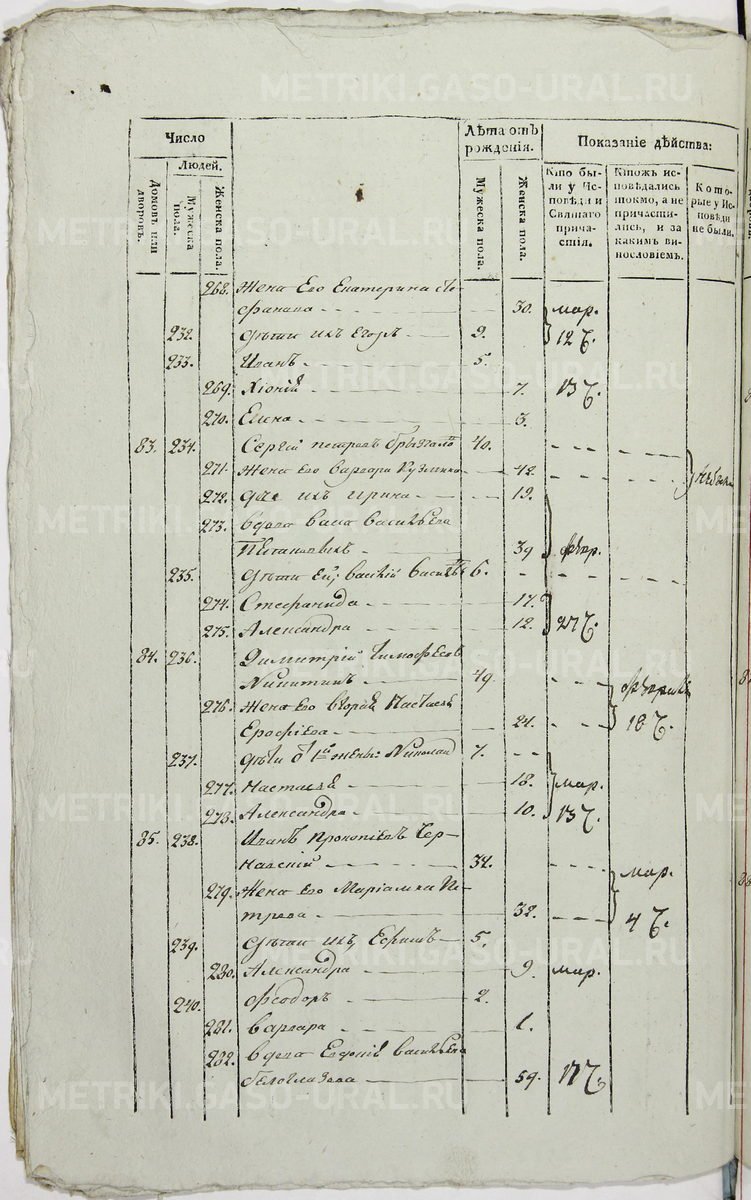 METRIKI.GASO-URAL.RU
Число
Лѣта отъ рожденія.
Показаніе дѣйства:
Людей.
Домовъ или дворовъ.
Мужеска пола.
Женска пола.
Мужеска пола.
Женска пола.
Кто были у Исповѣди и Святаго причастія.
Ктожъ исповѣдались токмо, а не причастились, и за какимъ винословіемъ.
Которые у Исповѣди не были.
268. Жена Его Екатерина
30. мар.
232. дѣти ихъ Егоръ 9. 12 Ч.
233. Иванъ 5.
269. Хіонія 7. 13 Ч.
270. Елена 3.
83. 234. Сергій Петровъ 40.
271. Жена Его Варвара Кузмина 42.
272. ихъ Ирина 19.
273. Вдова Васильева
39
235. дѣти Ея, Василій 6.
274. Стефанида 17.
275. Александра 12. 27 Ч.
84. 236. Димитрій Тимофеевъ
Никитинъ 49.
276. Жена Его Вторая Настасья
Ерофіева 21. 18 Ч.
237. дѣти Николай 7.
277. Настасья 18. мар.
278. Александра 10. 13 Ч.
85. 238. Иванъ Прокопіевъ
34. мар.
279. Жена Его Маріамна Пе-
трова 32. 4 Ч.
239. дѣти ихъ, 5.
280. Александра 9. мар.
240. Феодоръ 2.
281. Варвара 1.
282. Вдова Васильева
Белоглазова 59. 17 Ч.